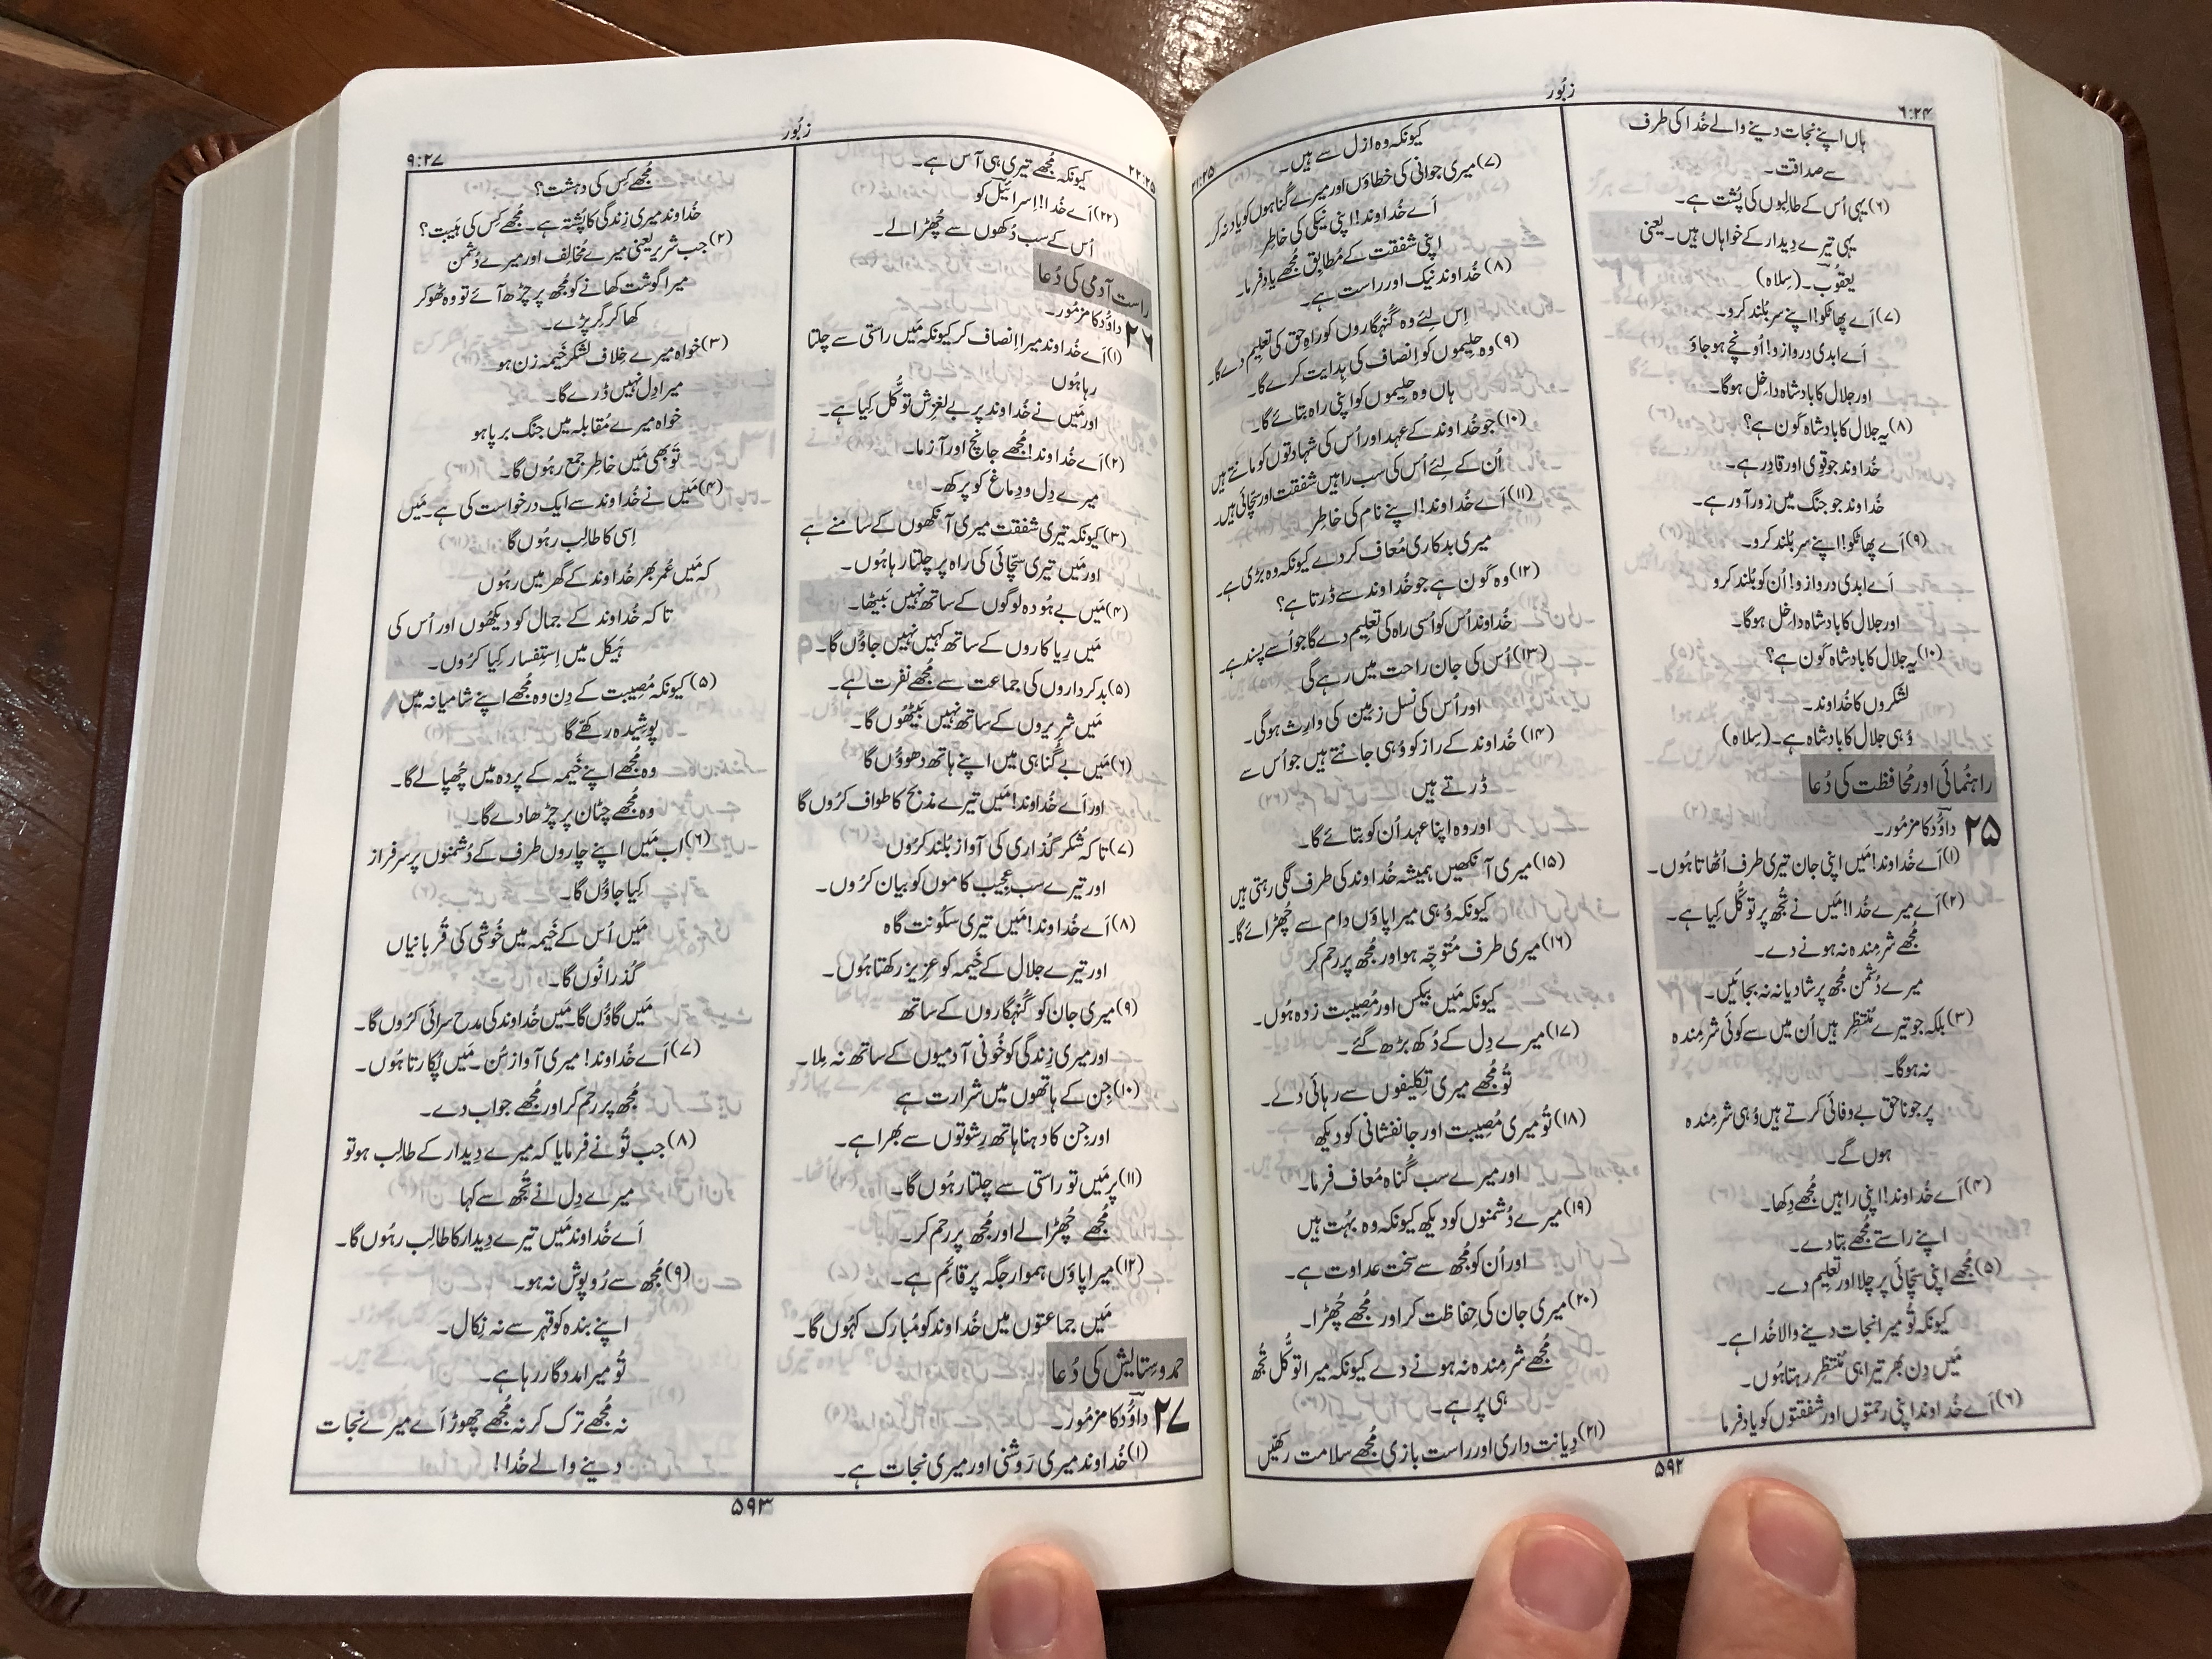 زبُور
۶:۲۴
ہاں اپنے نجات دینے والے خُدا کی طرف
سے صداقت۔
(۶) یہی اُس کے طالِبوں کی پُشت ہے۔
یہی تیرے دِیدار کے خواہاں ہیں۔ یعنی
یعقُوبؔ۔ (سِلاہ)
(۷) اَے پھاٹکو! اپنے سر بُلند کرو۔
اَے ابدی دروازو! اُونچے ہو جاؤ
اور جلال کا بادشاہ داخِل ہو گا۔
(۸) یہ جلال کا بادشاہ کَون ہے؟
خُداوند جو قوِی اور قادِر ہے۔
خُداوند جو جنگ میں زورآور ہے۔
(۹) اَے پھاٹکو! اپنے سر بُلند کرو۔
اَے ابدی دروازو! اُن کو بُلند کرو
اور جلال کا بادشاہ داخِل ہو گا۔
(۱۰) یہ جلال کا بادشاہ کَون ہے؟
لشکروں کا خُداوند۔
وُہی جلال کا بادشاہ ہے۔ (سِلاہ)
راہنُمائی اور مُحافظت کی دُعا
۲۵ داؤُدؔ کا مزمُور۔
(۱) اَے خُداوند! مَیں اپنی جان تیری طرف اُٹھاتا ہُوں۔
(۲) اَے میرے خُدا! مَیں نے تُجھ پر توکُّل کِیا ہے۔
مُجھے شرمِندہ نہ ہونے دے۔
میرے دُشمن مُجھ پر شادیانہ نہ بجائیں۔
(۳) بلکہ جو تیرے مُنتظِر ہیں اُن میں سے کوئی شرمِندہ
نہ ہو گا۔
پر جو ناحق بے وفائی کرتے ہیں وُہی شرمِندہ
ہوں گے۔
(۴) اَے خُداوند! اپنی راہیں مُجھے دِکھا۔
اپنے راستے مُجھے بتا دے۔
(۵) مُجھے اپنی سچّائی پر چلا اور تعلِیم دے۔
کیونکہ تُو میرا نجات دینے والا خُدا ہے۔
مَیں دِن بھر تیرا ہی مُنتظِر رہتا ہُوں۔
(۶) اَے خُداوند اپنی رحمتوں اور شفقتوں کو یاد فرما
۲۱:۲۵
کیونکہ وہ ازل سے ہیں۔
(۷) میری جوانی کی خطاؤں اور میرے گُناہوں کو یاد نہ کر۔
اَے خُداوند! اپنی نیکی کی خاطِر
اپنی شفقت کے مُطابِق مُجھے یاد فرما۔
(۸) خُداوند نیک اور راست ہے۔
اِس لِئے وہ گُنہگاروں کو راہِ حق کی تعلِیم دے گا۔
(۹) وہ حلِیموں کو اِنصاف کی ہِدایت کرے گا۔
ہاں وہ حلِیموں کو اپنی راہ بتائے گا۔
(۱۰) جو خُداوند کے عہد اور اُس کی شہادتوں کو مانتے ہیں
اُن کے لِئے اُس کی سب راہیں شفقت اور سچّائی ہیں۔
(۱۱) اَے خُداوند! اپنے نام کی خاطِر
میری بدکاری مُعاف کر دے کیونکہ وہ بڑی ہے۔
(۱۲) وہ کَون ہے جو خُداوند سے ڈرتا ہے؟
خُداوند اُس کو اُسی راہ کی تعلِیم دے گا جو اُسے پسند ہے۔
(۱۳) اُس کی جان راحت میں رہے گی
اور اُس کی نسل زمِین کی وارِث ہو گی۔
(۱۴) خُداوند کے راز کو وُہی جانتے ہیں جو اُس سے
ڈرتے ہیں
اور وہ اپنا عہد اُن کو بتائے گا۔
(۱۵) میری آنکھیں ہمیشہ خُداوند کی طرف لگی رہتی ہیں
کیونکہ وُہی میرا پاؤں دام سے چُھڑائے گا۔
(۱۶) میری طرف مُتوجِّہ ہو اور مُجھ پر رحم کر
کیونکہ مَیں بیکس اور مُصِیبت زدہ ہُوں۔
(۱۷) میرے دِل کے دُکھ بڑھ گئے۔
تُو مُجھے میری تکلِیفوں سے رہائی دے۔
(۱۸) تُو میری مُصِیبت اور جانفشانی کو دیکھ
اور میرے سب گُناہ مُعاف فرما۔
(۱۹) میرے دُشمنوں کو دیکھ کیونکہ وہ بُہت ہیں
اور اُن کو مُجھ سے سخت عداوت ہے۔
(۲۰) میری جان کی حِفاظت کر اور مُجھے چُھڑا۔
مُجھے شرمِندہ نہ ہونے دے کیونکہ میرا توکُّل تُجھ
ہی پر ہے۔
(۲۱) دِیانت داری اور راست بازی مُجھے سلامت رکھّیں
۵۹۲
زبُور
۲۲:۲۵
کیونکہ مُجھے تیری ہی آس ہے۔
(۲۲) اَے خُدا! اِسرائیلؔ کو
اُس کے سب دُکھوں سے چُھڑا لے۔
راست آدمی کی دُعا
۲۶ داؤُدؔ کا مزمُور۔
(۱) اَے خُداوند میرا اِنصاف کر کیونکہ مَیں راستی سے چلتا
رہا ہُوں
اور مَیں نے خُداوند پر بے لغزِش توکُّل کِیا ہے۔
(۲) اَے خُداوند! مُجھے جانچ اور آزما۔
میرے دِل و دِماغ کو پرکھ۔
(۳) کیونکہ تیری شفقت میری آنکھوں کے سامنے ہے
اور مَیں تیری سچّائی کی راہ پر چلتا رہا ہُوں۔
(۴) مَیں بے ہُودہ لوگوں کے ساتھ نہیں بَیٹھا۔
مَیں رِیاکاروں کے ساتھ کہیں نہیں جاؤُں گا۔
(۵) بدکرداروں کی جماعت سے مُجھے نفرت ہے۔
مَیں شرِیروں کے ساتھ نہیں بَیٹھُوں گا۔
(۶) مَیں بے گُناہی میں اپنے ہاتھ دھوؤُں گا
اور اَے خُداوند! مَیں تیرے مذبح کا طواف کرُوں گا
(۷) تاکہ شُکرگُذاری کی آواز بُلند کرُوں
اور تیرے سب عجِیب کاموں کو بیان کرُوں۔
(۸) اَے خُداوند! مَیں تیری سکُونت گاہ
اور تیرے جلال کے خَیمہ کو عزِیز رکھتا ہُوں۔
(۹) میری جان کو گُنہگاروں کے ساتھ
اور میری زِندگی کو خُونی آدمیوں کے ساتھ نہ مِلا۔
(۱۰) جِن کے ہاتھوں میں شرارت ہے
اور جِن کا دہنا ہاتھ رِشوتوں سے بھرا ہے۔
(۱۱) پر مَیں تو راستی سے چلتا رہُوں گا۔
مُجھے چُھڑا لے اور مُجھ پر رحم کر۔
(۱۲) میرا پاؤں ہموار جگہ پر قائِم ہے۔
مَیں جماعتوں میں خُداوند کو مُبارک کہُوں گا۔
حمد و سِتایش کی دُعا
۲۷ داؤُدؔ کا مزمُور۔
(۱) خُداوند میری رَوشنی اور میری نجات ہے۔
۹:۲۷
مُجھے کِس کی دہشت؟
خُداوند میری زِندگی کا پُشتہ ہے۔ مُجھے کِس کی ہَیبت؟
(۲) جب شرِیر یعنی میرے مُخالِف اور میرے دُشمن
میرا گوشت کھانے کو مُجھ پر چڑھ آئے تو وہ ٹھوکر
کھا کر گِر پڑے۔
(۳) خواہ میرے خِلاف لشکر خَیمہ زن ہو
میرا دِل نہیں ڈرے گا۔
خواہ میرے مُقابلہ میں جنگ برپا ہو
تَو بھی مَیں خاطِر جمع رہُوں گا۔
(۴) مَیں نے خُداوند سے ایک درخواست کی ہے۔ مَیں
اِسی کا طالِب رہُوں گا
کہ مَیں عُمر بھر خُداوند کے گھر میں رہُوں
تاکہ خُداوند کے جمال کو دیکھُوں اور اُس کی
ہَیکل میں اِستِفسار کِیا کرُوں۔
(۵) کیونکہ مُصِیبت کے دِن وہ مُجھے اپنے شامیانہ میں
پوشِیدہ رکھّے گا
وہ مُجھے اپنے خَیمہ کے پردہ میں چُھپا لے گا۔
وہ مُجھے چٹان پر چڑھا دے گا۔
(۶) اب مَیں اپنے چاروں طرف کے دُشمنوں پر سرفراز
کِیا جاؤُں گا۔
مَیں اُس کے خَیمہ میں خُوشی کی قُربانیاں
گُذرانُوں گا۔
مَیں گاؤُں گا۔ مَیں خُداوند کی مدح سرائی کرُوں گا۔
(۷) اَے خُداوند! میری آواز سُن۔ مَیں پُکارتا ہُوں۔
مُجھ پر رحم کر اور مُجھے جواب دے۔
(۸) جب تُو نے فرمایا کہ میرے دِیدار کے طالِب ہو تو
میرے دِل نے تُجھ سے کہا
اَے خُداوند مَیں تیرے دِیدار کا طالِب رہُوں گا۔
(۹) مُجھ سے رُوپوش نہ ہو۔
اپنے بندہ کو قہر سے نہ نِکال۔
تُو میرا مددگار رہا ہے۔
نہ مُجھے ترک کر نہ مُجھے چھوڑ اَے میرے نجات
دینے والے خُدا!
۵۹۳